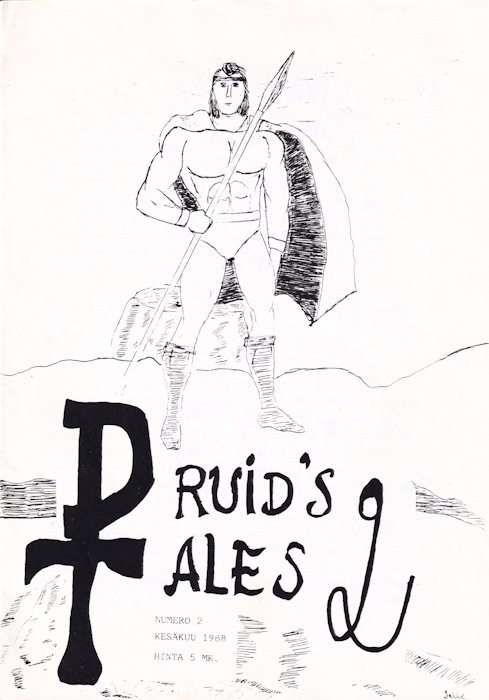 DRUID'S
TALES 2
NUMERO 2
KESÄKUU 1988
HINTA 5 MK.